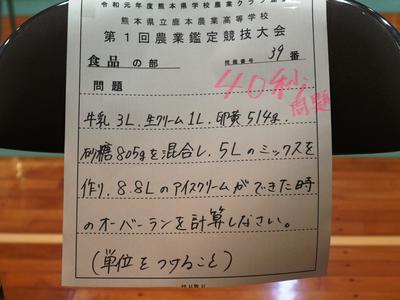 令和元年度熊本県学校農業クラブ連
熊本県立鹿本農業高等学校
第1回農業鑑定競技大会
食品の部 問題番号 39番
問題 40秒問題
牛乳3L、生クリーム1L、卵黄514g、
砂糖805gを混合し、5Lのミックスを
作り、8.8Lのアイスクリームができた時
のオーバーランを計算しなさい。
(単位をつけること)